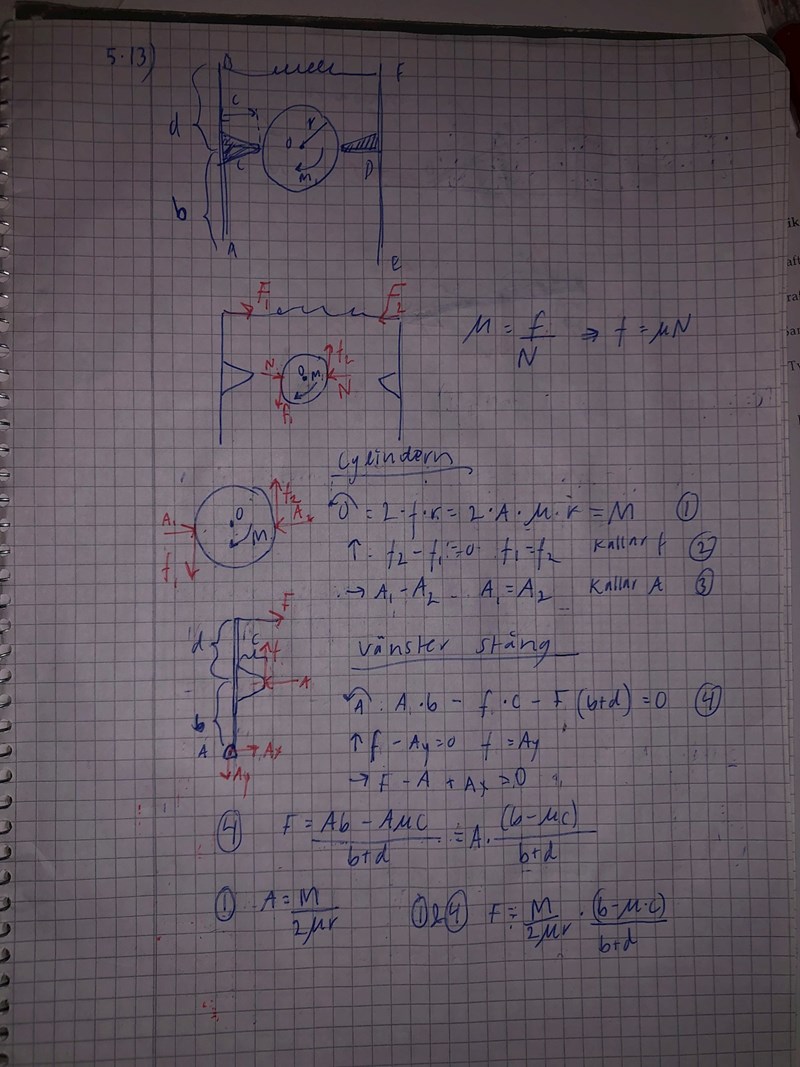 5.13)
B F
c
d
r
O
C M₁ D
b
A E
F₁ F₂
M = f/N ⇒ f = μN
N O M₁ f₂ N
f₁
Cylindern
O f₂
A₁ M A₂
f₁
O = 2·f·r = 2·A·μ·r = M ①
↑: f₂ - f₁ = 0 f₁ = f₂ kallar f ②
→ A₁ - A₂ A₁ = A₂ kallar A ③
F
d c f
A
b
A Ax
Ay
vänster stång
A: A·b - f·c - F(b+d) = 0 ④
↑ f - Ay = 0 f = Ay
→ F - A + Ax = 0
④ F = (Ab - Aμc)/(b+d) = A·(b - μc)/(b+d)
① A = M/(2μr) ①&④ F = M/(2μr) · (b - μ·c)/(b+d)